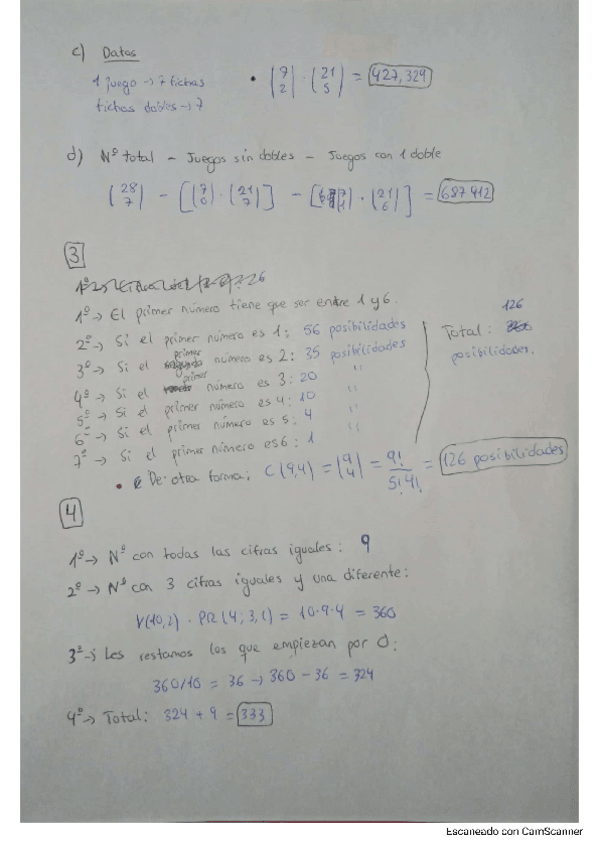 c) Datos
1 juego → 7 fichas
fichas dobles → 7
• (7 2) · (21 5) = 427,329
d) Nº total - Juegos sin dobles - Juegos con 1 doble
(28 7) - [(7 0) · (21 7)] - [(7 1) · (21 6)] = 687 912
3
1º → El primer número tiene que ser entre 1 y 6.
2º → Si el primer número es 1: 56 posibilidades
3º → Si el primer número es 2: 35 posibilidades
4º → Si el primer número es 3: 20 "
5º → Si el primer número es 4: 10 "
6º → Si el primer número es 5: 4 "
7º → Si el primer número es 6: 1 "
Total: 126 posibilidades.
• De otra forma: C(9,4) = (9 4) = 9! / 5!4! = 126 posibilidades
4
1º → Nº con todas las cifras iguales: 9
2º → Nº con 3 cifras iguales y una diferente:
V(10,2) · PR(4; 3,1) = 10·9·4 = 360
3º → Les restamos los que empiezan por 0:
360/10 = 36 → 360 - 36 = 324
4º → Total: 324 + 9 = 333
Escaneado con CamScanner